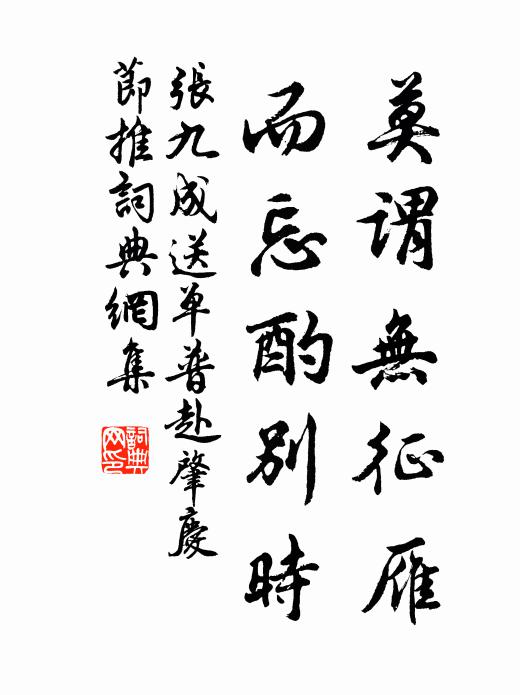 莫謂無征雁
而忘酌別時
張九成送單普赴肇慶
節推詞典網集
詞典網印